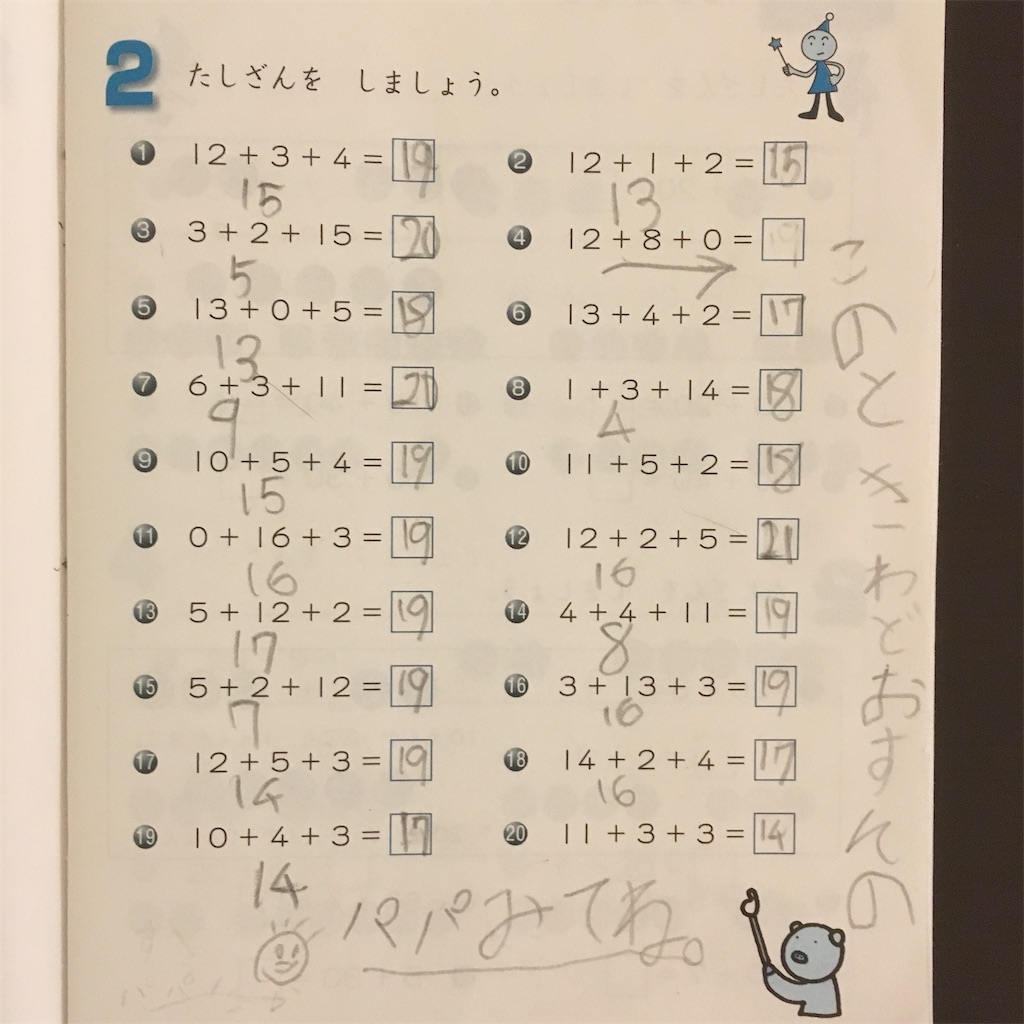 2 たしざんを しましょう。
① 12+3+4=19 ② 12+1+2=15
15 13
③ 3+2+15=20 ④ 12+8+0=19
5
⑤ 13+0+5=18 ⑥ 13+4+2=17
13
⑦ 6+3+11=21 ⑧ 1+3+14=18
9 4
⑨ 10+5+4=19 ⑩ 11+5+2=18
15
⑪ 0+16+3=19 ⑫ 12+2+5=21
16 16
⑬ 5+12+2=19 ⑭ 4+4+11=19
17 8
⑮ 5+2+12=19 ⑯ 3+13+3=19
7 16
⑰ 12+5+3=19 ⑱ 14+2+4=17
14 16
⑲ 10+4+3=17 ⑳ 11+3+3=14
14
パパみてね。
このとき わどおすんの